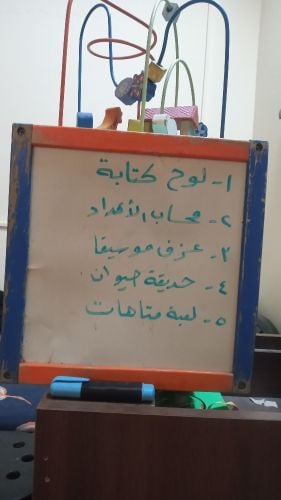 ١- لوح كتابة
٢- حساب الأعداد
٣- عزف موسيقا
٤- حديقة حيوان
٥- لعبة متاهات